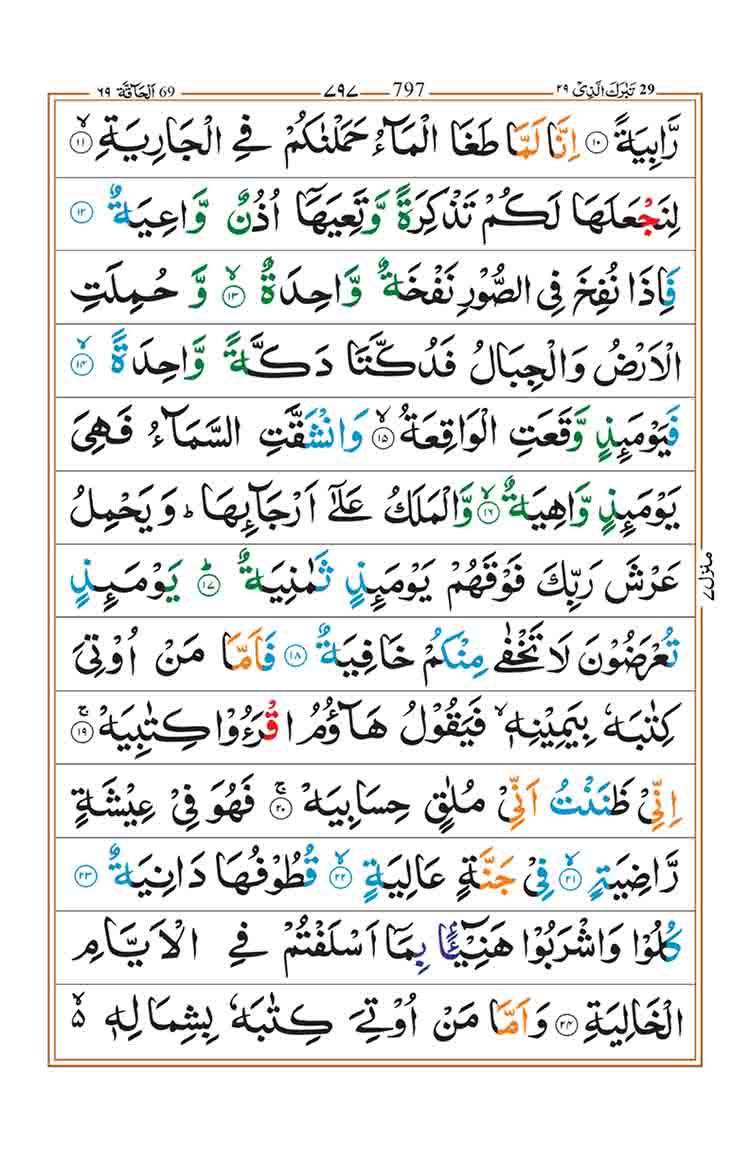 29 تَبٰرَكَ الَّذِىْ ٢٩ 797 ٧٩٧ 69 اَلْحَآقَّة ٦٩
رَّابِيَةً ١٠ اِنَّا لَمَّا طَغَا الْمَآءُ حَمَلْنٰكُمْ فِي الْجَارِيَةِ ۙ ١١
لِنَجْعَلَهَا لَكُمْ تَذْكِرَةً وَّتَعِيَهَآ اُذُنٌ وَّاعِيَةٌ ١٢
فَاِذَا نُفِخَ فِى الصُّوْرِ نَفْخَةٌ وَّاحِدَةٌ ۙ ١٣ وَّ حُمِلَتِ
الْاَرْضُ وَالْجِبَالُ فَدُكَّتَا دَكَّةً وَّاحِدَةً ۙ ١٤
فَيَوْمَىِٕذٍ وَّقَعَتِ الْوَاقِعَةُ ۙ ١٥ وَانْشَقَّتِ السَّمَآءُ فَهِىَ
يَوْمَىِٕذٍ وَّاهِيَةٌ ۙ ١٦ وَّالْمَلَكُ عَلٰٓى اَرْجَآىِٕهَا ؕ وَيَحْمِلُ
عَرْشَ رَبِّكَ فَوْقَهُمْ يَوْمَىِٕذٍ ثَمٰنِيَةٌ ؕ ١٧ يَوْمَىِٕذٍ
تُعْرَضُوْنَ لَا تَخْفٰى مِنْكُمْ خَافِيَةٌ ١٨ فَاَمَّا مَنْ اُوْتِىَ
كِتٰبَهٗ بِيَمِيْنِهٖ ۙ فَيَقُوْلُ هَآؤُمُ اقْرَءُوْا كِتٰبِيَهْ ۚ ١٩
اِنِّىْ ظَنَنْتُ اَنِّىْ مُلٰقٍ حِسَابِيَهْ ۚ ٢٠ فَهُوَ فِىْ عِيْشَةٍ
رَّاضِيَةٍ ۙ ٢١ فِىْ جَنَّةٍ عَالِيَةٍ ۙ ٢٢ قُطُوْفُهَا دَانِيَةٌ ٢٣
كُلُوْا وَاشْرَبُوْا هَنِيْٓـًٔا بِمَآ اَسْلَفْتُمْ فِى الْاَيَّامِ
الْخَالِيَةِ ٢٤ وَاَمَّا مَنْ اُوْتِىَ كِتٰبَهٗ بِشِمَالِهٖ ۙ۵
منزل ٧